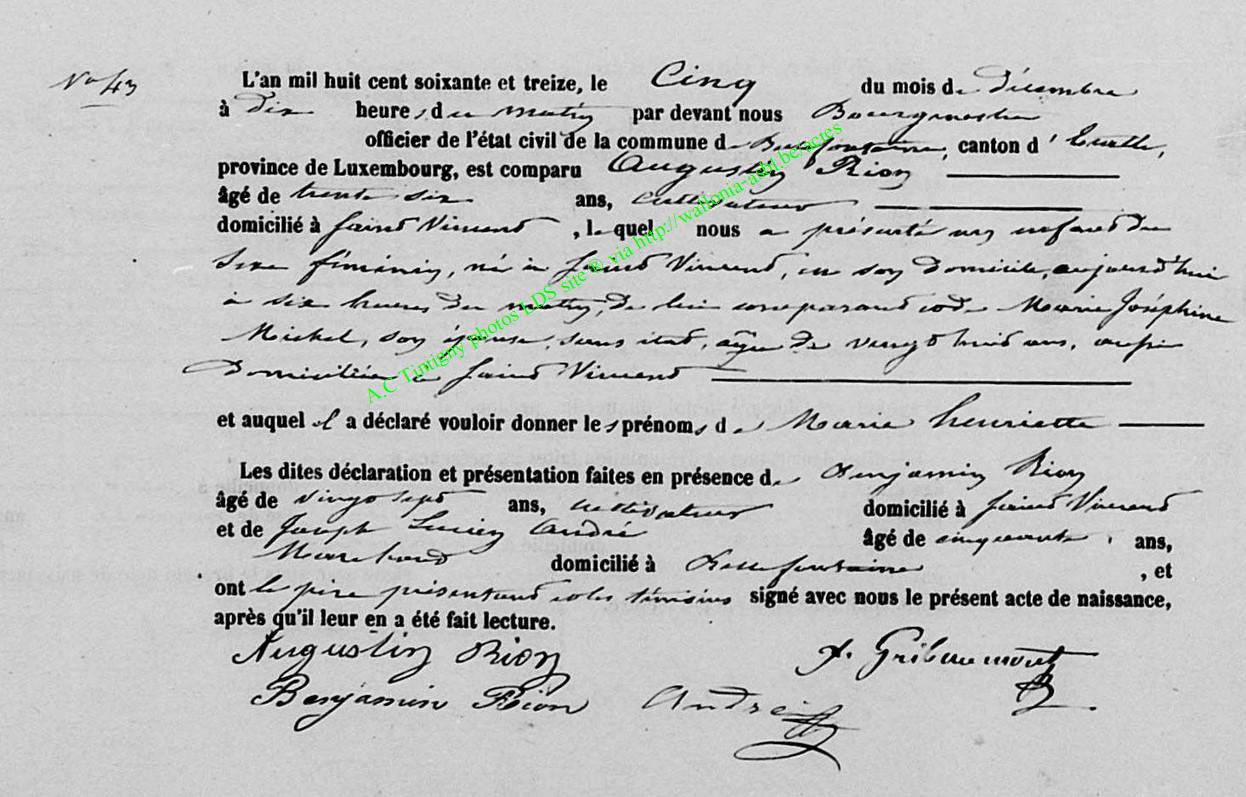 No 43
L'an mil huit cent soixante et treize, le Cinq du mois de décembre
à dix heures du matin par devant nous Bourgmestre
officier de l'état civil de la commune de Bellefontaine, canton d'Etalle,
province de Luxembourg, est comparu Augustin Rion
âgé de trente six ans, cultivateur
domicilié à Saint Vincent, lequel nous a présenté un enfant du
sexe féminin, né à Saint Vincent, en son domicile, aujourd'hui
à six heures du matin, de lui comparant et de Marie Joséphine
Michel, son épouse, sans état, âgée de vingt huit ans, aussi
domiciliée à Saint Vincent
et auquel il a déclaré vouloir donner les prénoms de Marie Henriette
Les dites déclaration et présentation faites en présence de Benjamin Rion
âgé de vingt sept ans, cultivateur domicilié à Saint Vincent
et de Joseph Lucien André âgé de cinquante ans,
Marchand domicilié à Bellefontaine, et
ont le père présentant et les témoins signé avec nous le présent acte de naissance,
après qu'il leur en a été fait lecture.
Augustin Rion A. Gribaumont
Benjamin Rion André
A.C Tintigny photos LDS site ® via http://wallonia-asbl.be/actes